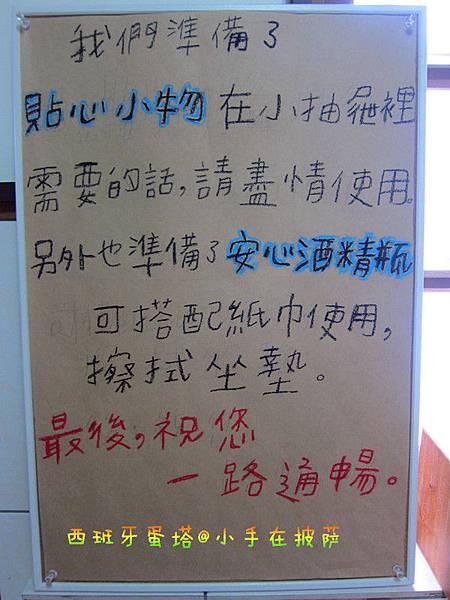 我們準備了
貼心小物在小抽屜裡
需要的話,請盡情使用。
另外也準備了安心酒精瓶
可搭配紙巾使用,
擦拭坐墊。
最後,祝您
一路通暢。
西班牙蛋塔@小手在披薩